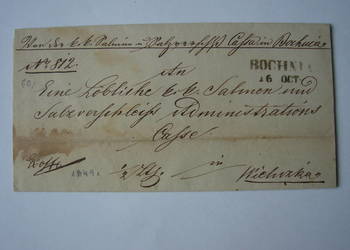 Von der k. k. Salinen u. Salzverschleiß Cassa in Bochnia
No 812.
BOCHNIA
16 OCT
An
Eine Löbliche k. k. Salinen und
Salzverschleiß Administrations
Casse
in
Wieliczka